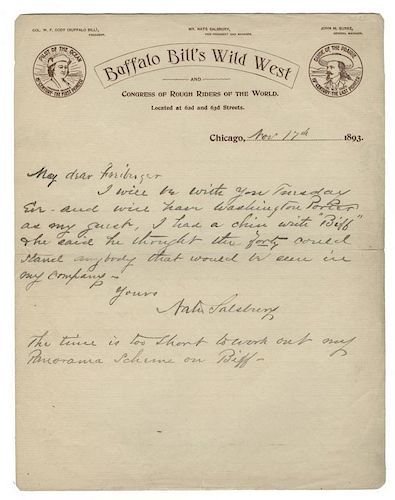 COL. W. F. CODY (BUFFALO BILL), PRESIDENT.
MR. NATE SALSBURY, VICE PRESIDENT AND MANAGER.
JOHN M. BURKE, GENERAL MANAGER.
PILOT OF THE OCEAN 15TH CENTURY THE FIRST PIONEER
GUIDE OF THE PRAIRIE 19TH CENTURY THE LAST PIONEER
Buffalo Bill's Wild West
AND
CONGRESS OF ROUGH RIDERS OF THE WORLD.
Located at 62d and 63d Streets.
Chicago, Nov 17th 1893.
My dear
I will be with you Tuesday
Eve - and will have Washington Porter
as my guest, I had a chin with "Biff"
& he said he thought the forty could
stand anybody that would be seen in
my company -
Yours
Nate Salsbury
The time is too short to work out my
Panorama Scheme on Biff -